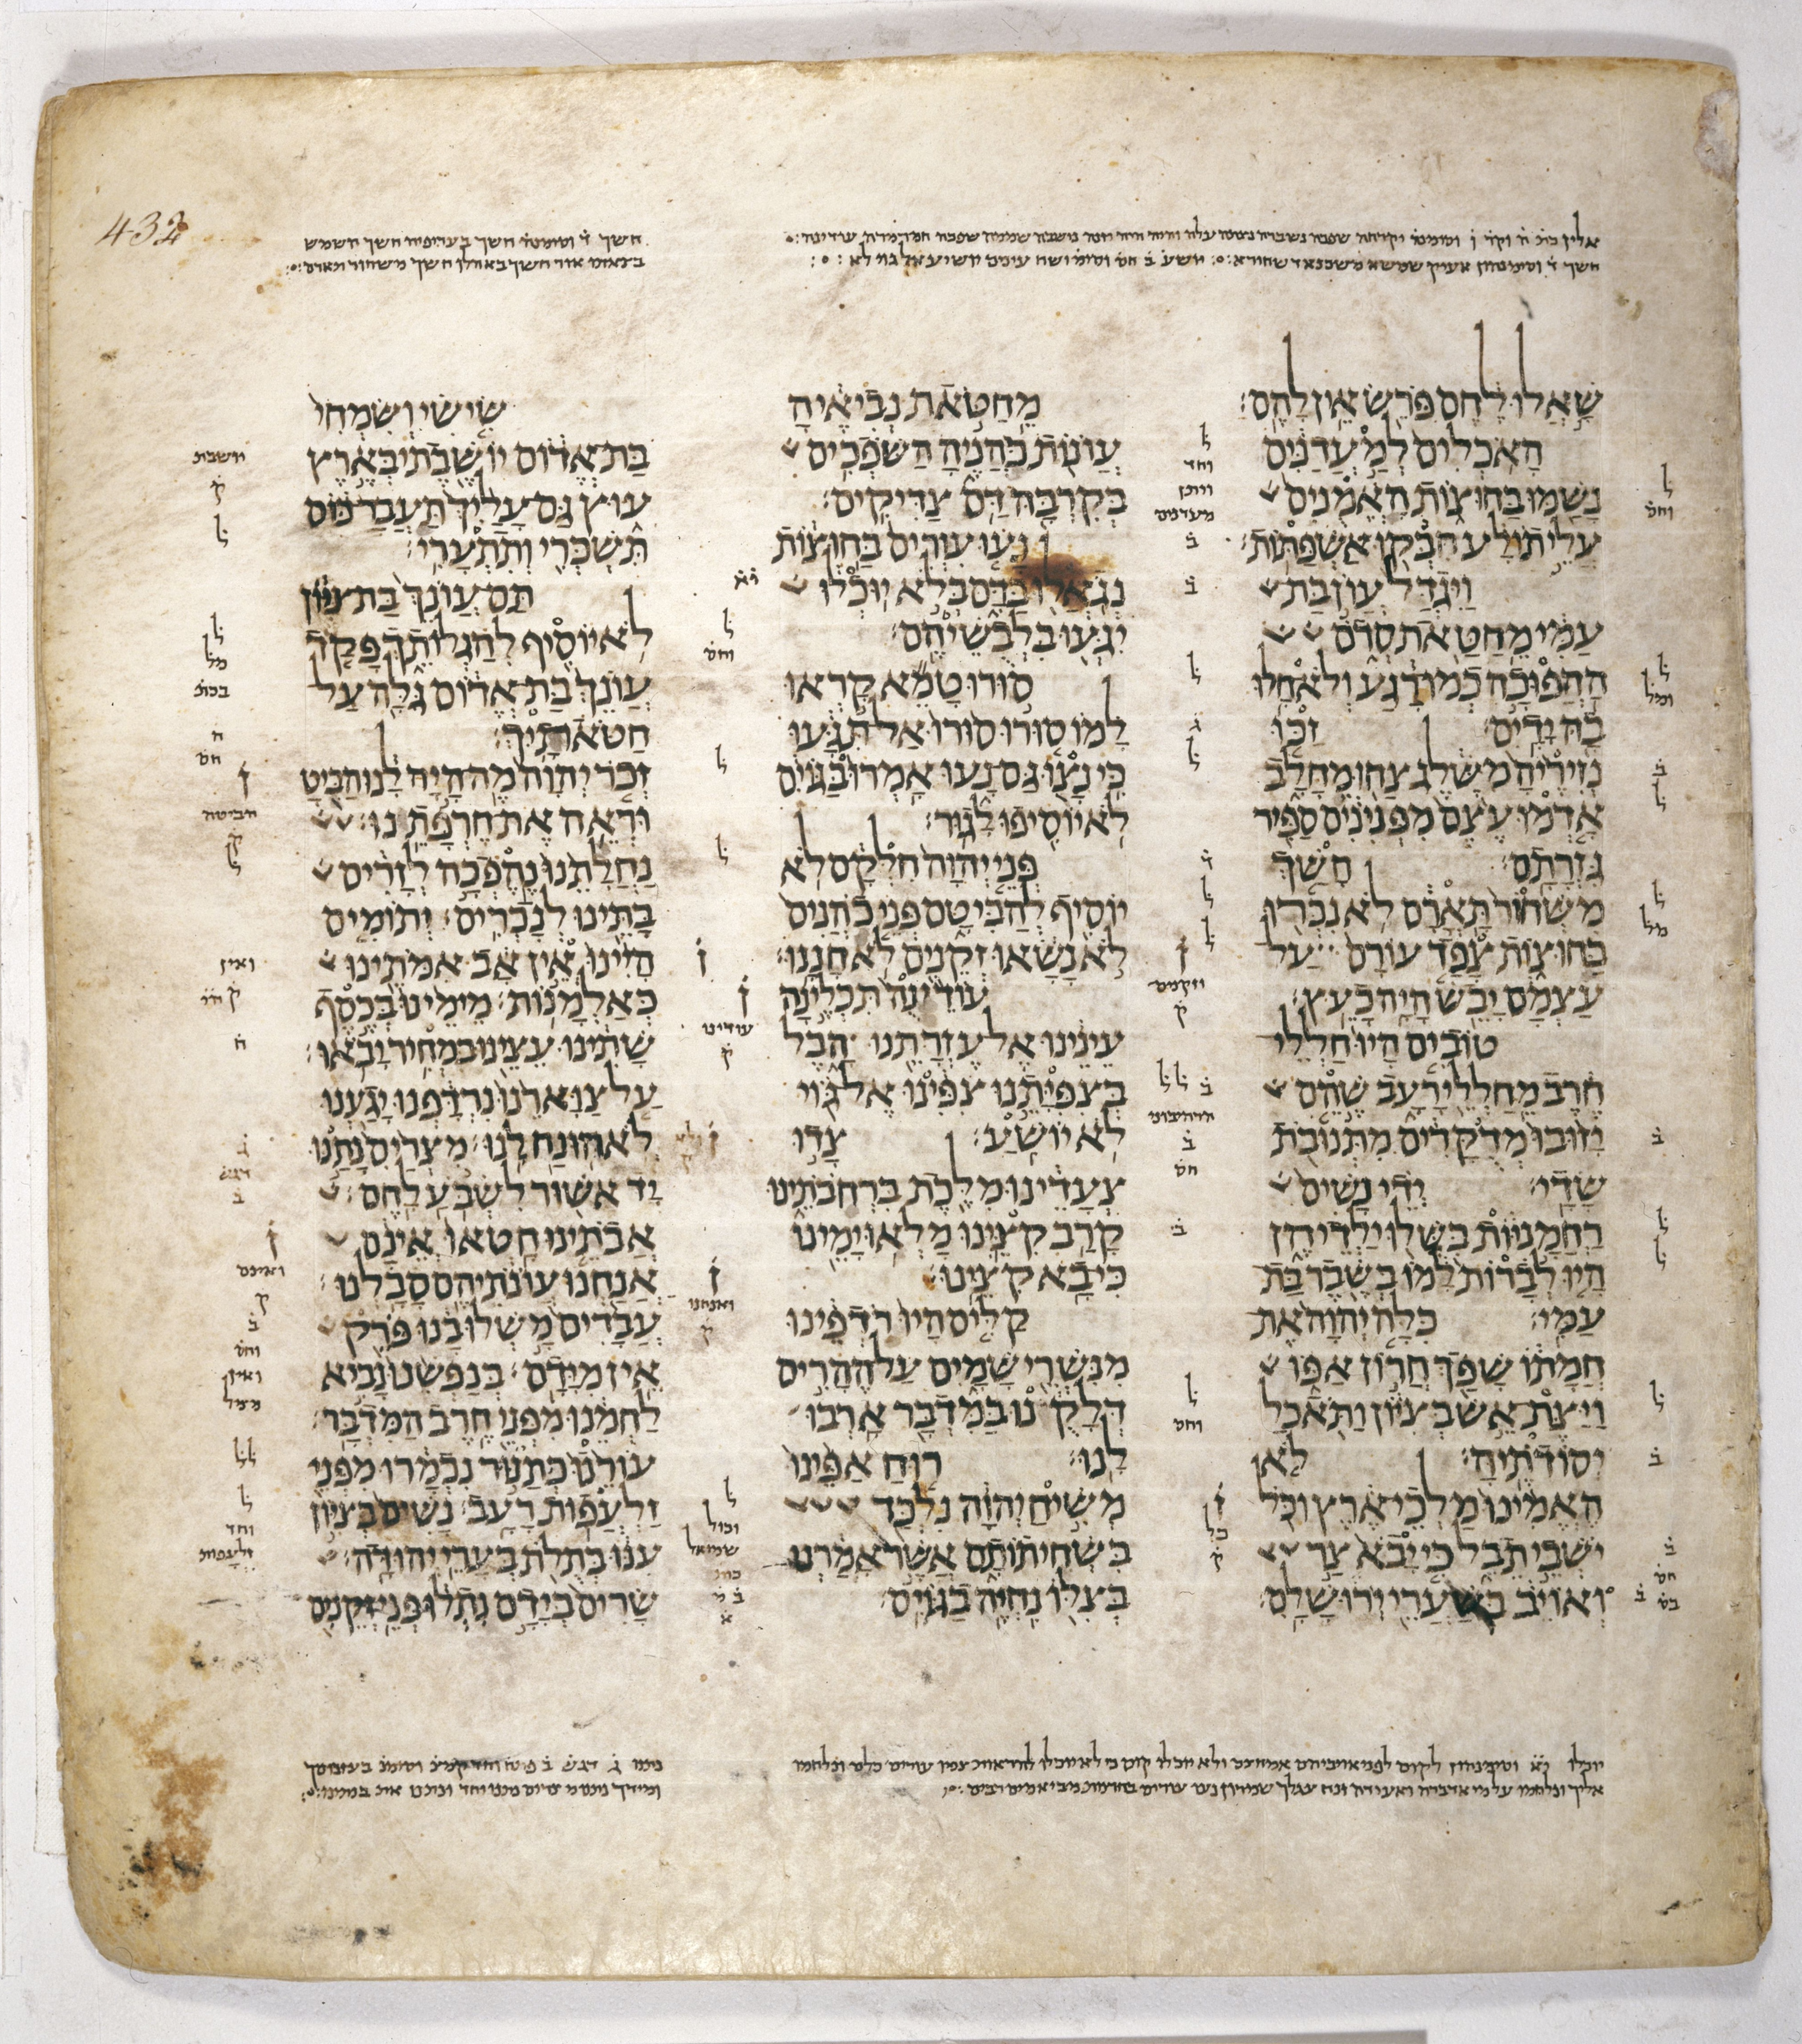 432
שאלו לחם פרש אין להם׃
האכלים למעדנים
נשמו בחוצות האמנים
עלי תולע חבקו אשפתות׃
ויגדל עון בת
עמי מחטאת סדם
ההפוכה כמו רגע ולא חלו
בה ידים׃ זכו
נזיריה משלג צחו מחלב
אדמו עצם מפנינים ספיר
גזרתם׃ חשך
משחור תארם לא נכרו
בחוצות צפד עורם על
עצמם יבש היה כעץ׃
טובים היו חללי
חרב מחללי רעב שהם
יזובו מדקרים מתנובת
שדי׃ ידי נשים
רחמניות בשלו ילדיהן
היו לברות למו בשבר בת
עמי׃ כלה יהוה את
חמתו שפך חרון אפו
ויצת אש בציון ותאכל
יסודתיה׃ לא
האמינו מלכי ארץ וכל
ישבי תבל כי יבא צר
ואויב בשערי ירושלם׃
מחטאת נביאיה
עונות כהניה השפכים
בקרבה דם צדיקים׃
נעו עורים בחוצות
נגאלו בדם בלא יוכלו
יגעו בלבשיהם׃
סורו טמא קראו
למו סורו סורו אל תגעו
כי נצו גם נעו אמרו בגוים
לא יוסיפו לגור׃
פני יהוה חלקם לא
יוסיף להביטם פני כהנים
לא נשאו זקנים לא חננו׃
עודינה תכלינה
עינינו אל עזרתנו הבל
בצפיתנו צפינו אל גוי
לא יושע׃ צדו
צעדינו מלכת ברחבתינו
קרב קצינו מלאו ימינו
כי בא קצינו׃
קלים היו רדפינו
מנשרי שמים על ההרים
דלקנו במדבר ארבו
לנו׃ רוח אפינו
משיח יהוה נלכד
בשחיתותם אשר אמרנו
בצלו נחיה בגוים׃
שישי ושמחי
בת אדום יושבתי בארץ
עוץ גם עליך תעבר כוס
תשכרי ותתערי׃
תם עונך בת ציון
לא יוסיף להגלותך פקד
עונך בת אדום גלה על
חטאתיך׃
זכר יהוה מה היה לנו הביט
וראה את חרפתנו׃
נחלתנו נהפכה לזרים
בתינו לנכרים׃ יתומים
היינו אין אב אמתינו
כאלמנות׃ מימינו בכסף
שתינו עצינו במחיר יבאו׃
על צוארנו נרדפנו יגענו
לא הונח לנו׃ מצרים נתנו
יד אשור לשבע לחם׃
אבתינו חטאו אינם
אנחנו עונתיהם סבלנו׃
עבדים משלו בנו פרק
אין מידם׃ בנפשנו נביא
לחמנו מפני חרב המדבר׃
עורנו כתנור נכמרו מפני
זלעפות רעב׃ נשים בציון
ענו בתלת בערי יהודה׃
שרים בידם נתלו פני זקנים